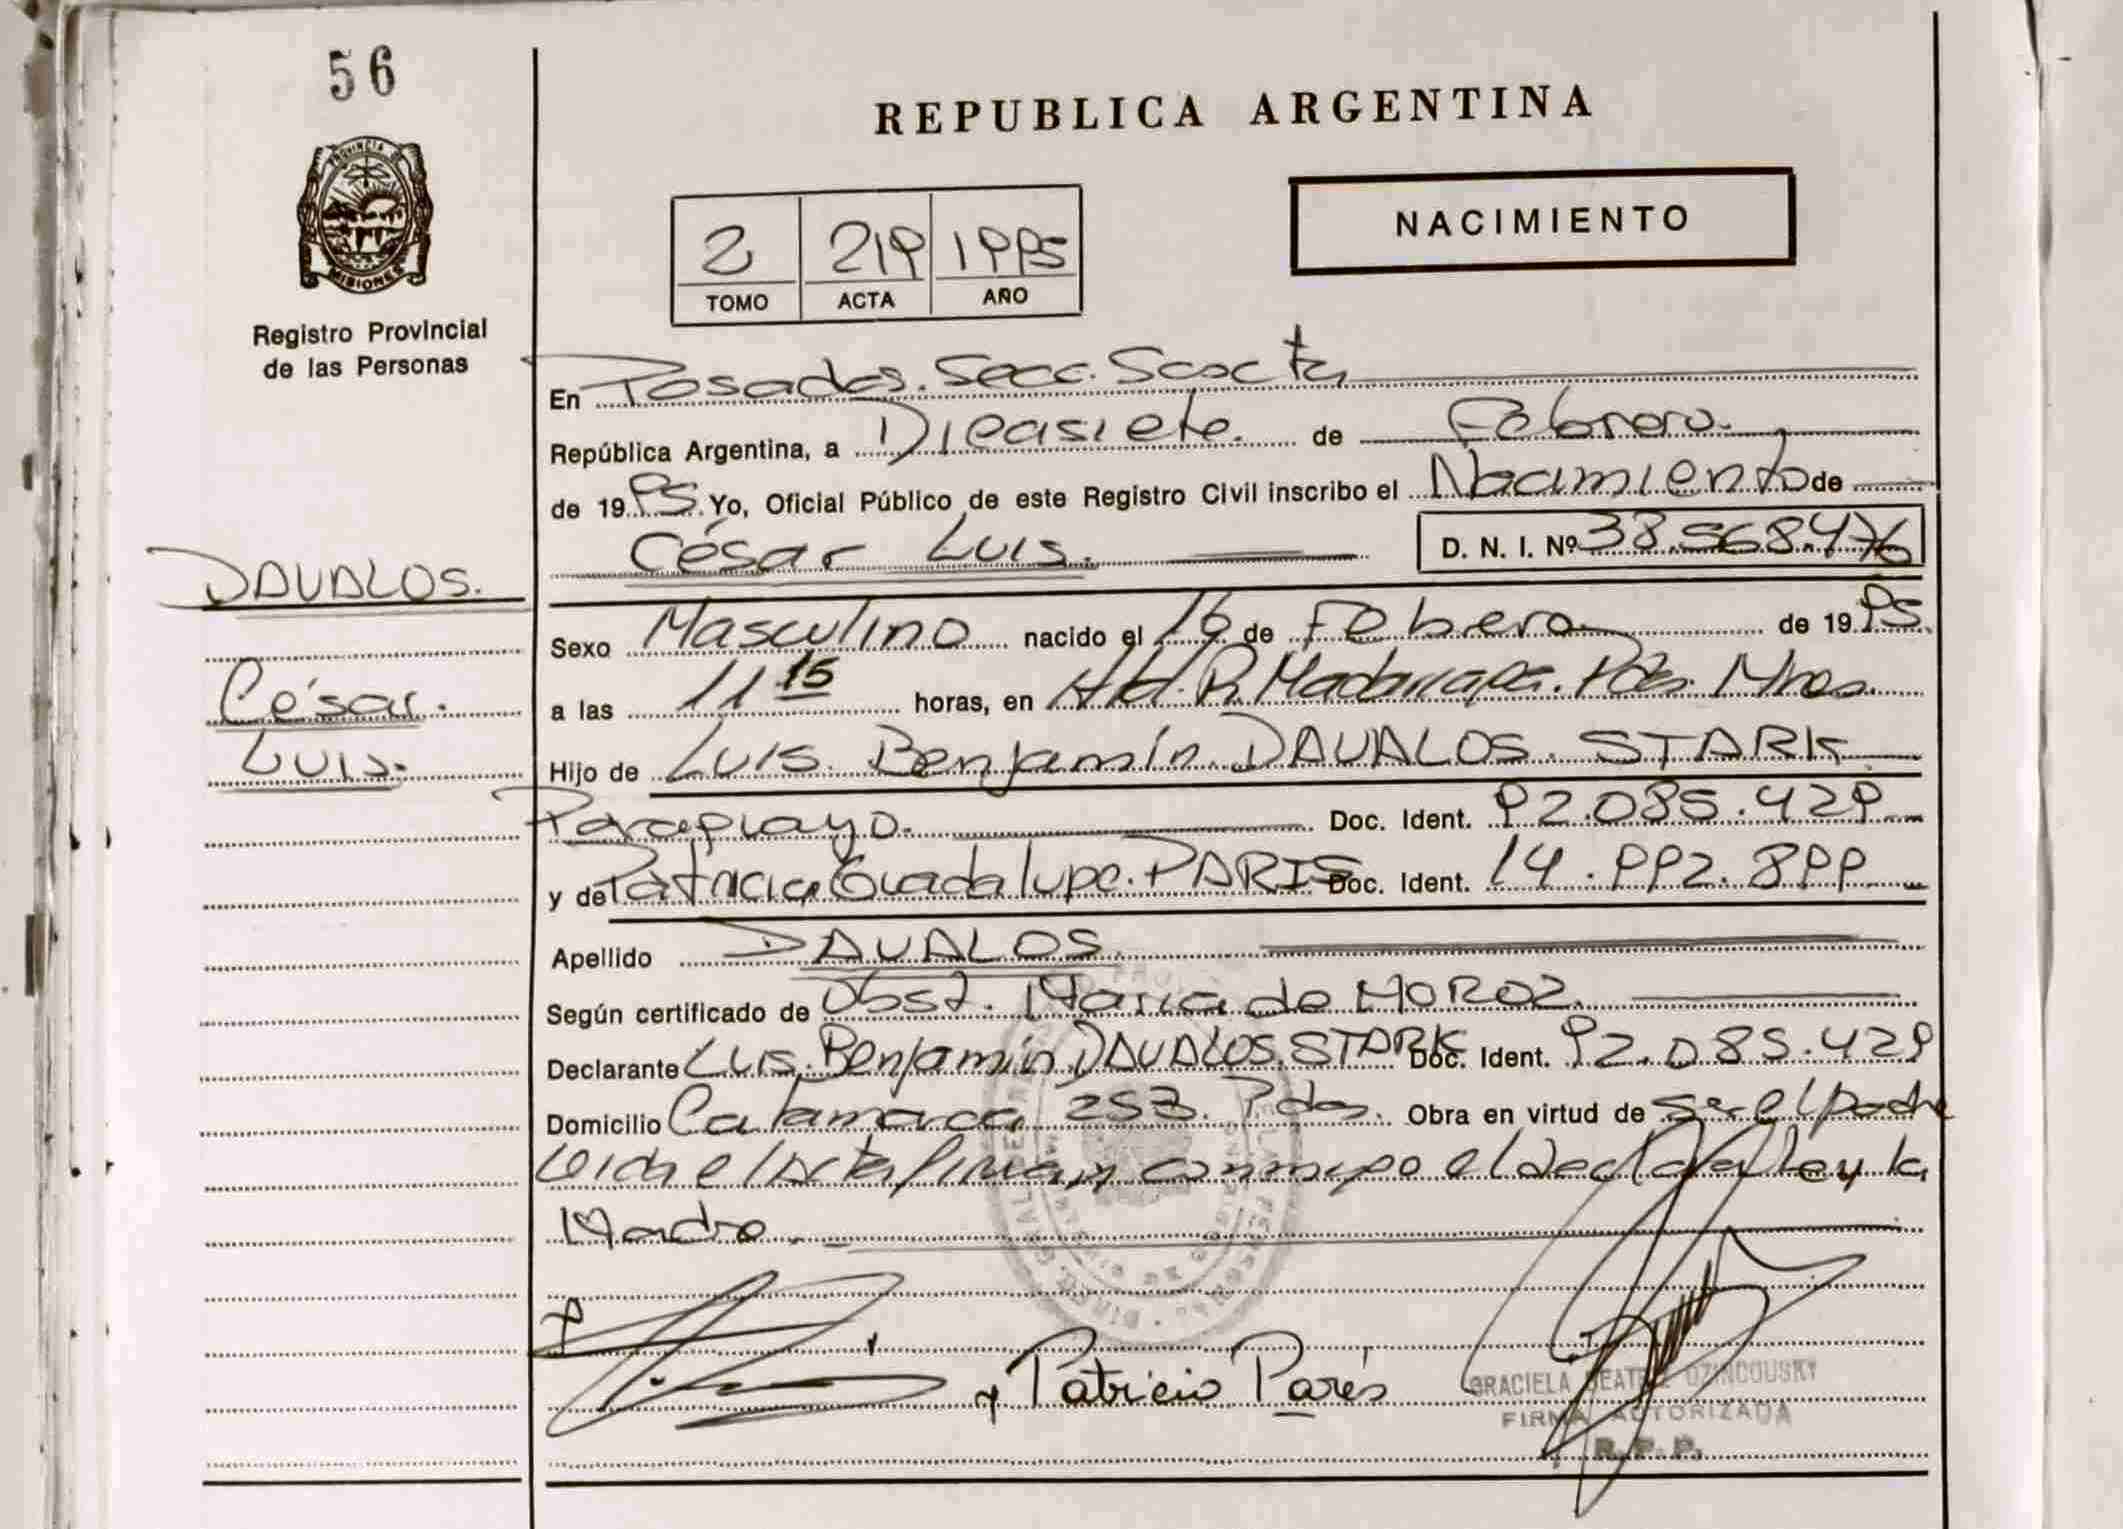 56
PROVINCIA DE
MISIONES
Registro Provincial
de las Personas
REPUBLICA ARGENTINA
NACIMIENTO
2 219 1995
TOMO ACTA AÑO
En Posadas. Secc. Sexta
República Argentina, a Diecisiete. de Febrero.
de 1995. Yo, Oficial Público de este Registro Civil inscribo el Nacimiento de
César Luis. D. N. I. Nº 38.568.476
DAVALOS.
César.
Luis.
Sexo Masculino nacido el 16 de Febrero de 1995.
a las 11 15 horas, en Htal. R. Madariaga. Pdas. Mnes.
Hijo de Luis. Benjamín. DAVALOS. STARK
Paraguayo. Doc. Ident. 92.085.429
y de Patricia Guadalupe. PARIS Doc. Ident. 14.992.899
Apellido DAVALOS.
Según certificado de Obst. María de MOROZ.
Declarante Luis. Benjamín. DAVALOS. STARK Doc. Ident. 92.085.429
Domicilio Catamarca 253. Pdas. Obra en virtud de ser el padre
Leida el Acta firman conmigo el declarante y la
Madre.
y Patricia Parés
GRACIELA BEATRIZ DZINCOUSKY
FIRMA AUTORIZADA
R. P. P.